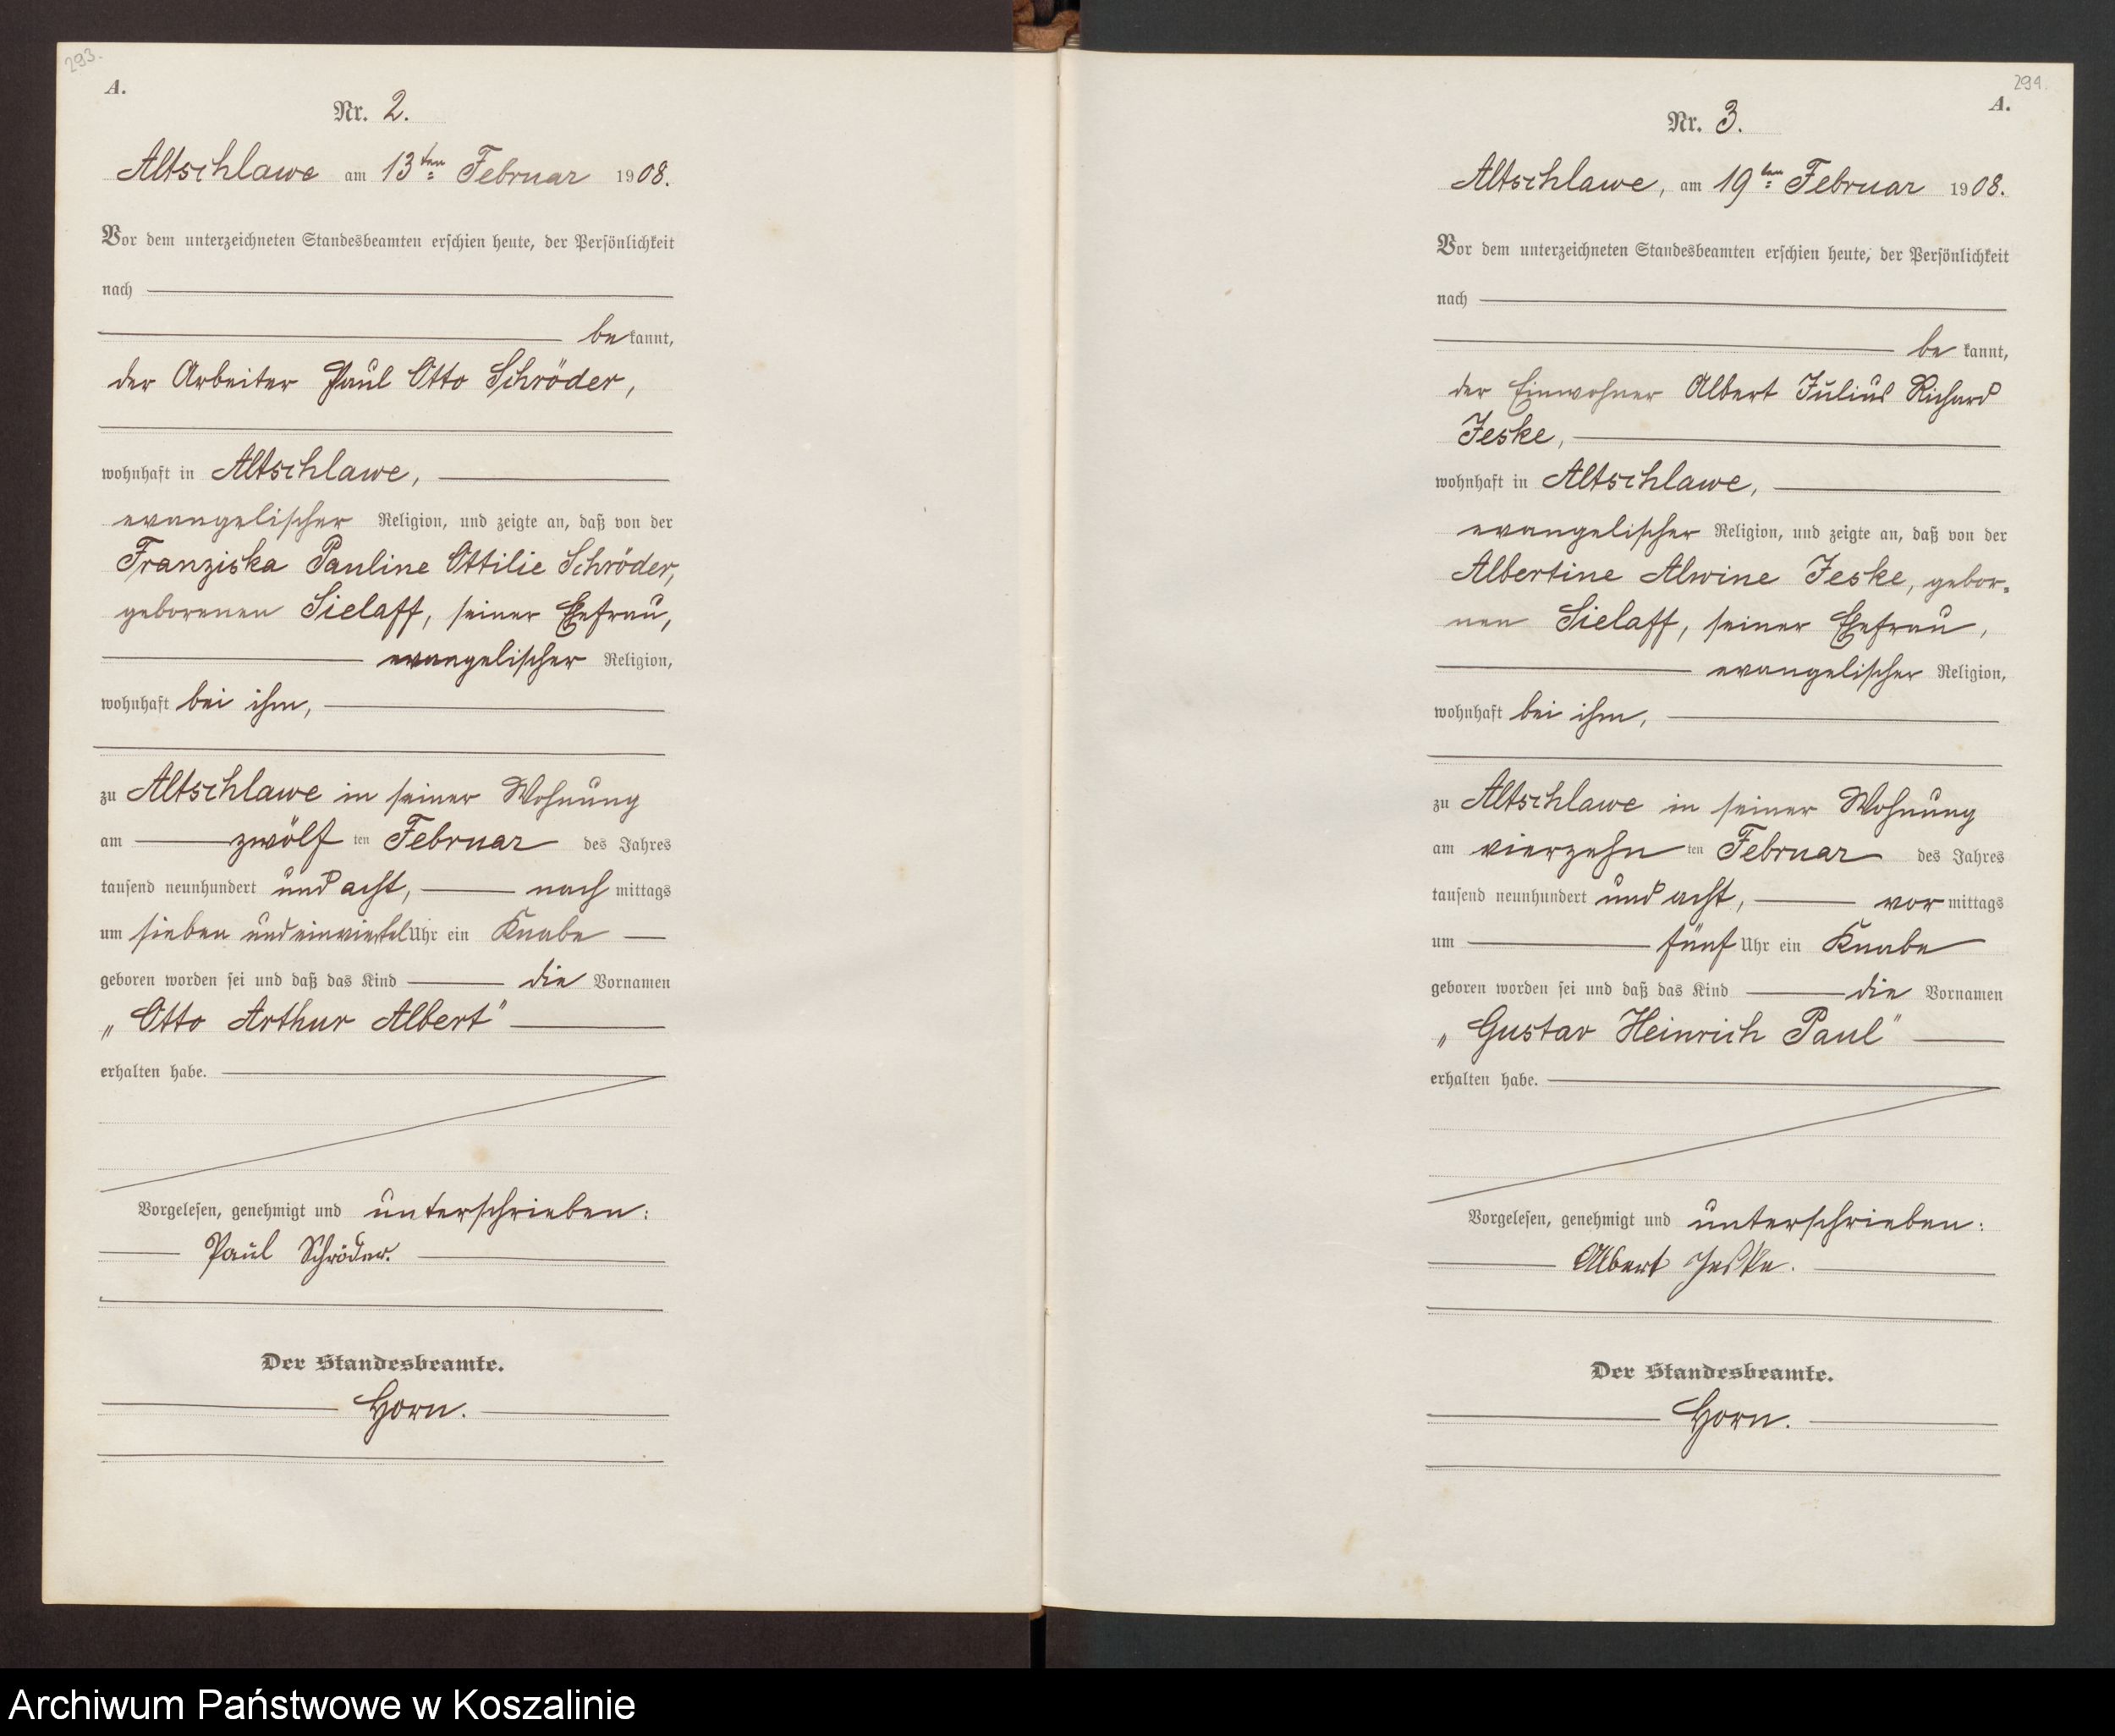 293.
A.
Nr. 2.
Altschlawe am 13ten Februar 1908.
Vor dem unterzeichneten Standesbeamten erschien heute, der Persönlichkeit
nach
be kannt,
der Arbeiter Paul Otto Schröder,
wohnhaft in Altschlawe,
evangelischer Religion, und zeigte an, daß von der
Franziska Pauline Ottilie Schröder,
geborenen Sielaff, seiner Ehefrau,
evangelischer Religion,
wohnhaft bei ihm,
zu Altschlawe in seiner Wohnung
am zwölf ten Februar des Jahres
tausend neunhundert und acht, nach mittags
um sieben und einviertel Uhr ein Knabe
geboren worden sei und daß das Kind die Vornamen
„Otto Arthur Albert"
erhalten habe.
Vorgelesen, genehmigt und unterschrieben:
Paul Schröder.
Der Standesbeamte.
Horn.
294.
A.
Nr. 3.
Altschlawe, am 19ten Februar 1908.
Vor dem unterzeichneten Standesbeamten erschien heute, der Persönlichkeit
nach
be kannt,
der Einwohner Albert Julius Richard
Jeske,
wohnhaft in Altschlawe,
evangelischer Religion, und zeigte an, daß von der
Albertine Alwine Jeske, gebor=
nen Sielaff, seiner Ehefrau,
evangelischer Religion,
wohnhaft bei ihm,
zu Altschlawe in seiner Wohnung
am vierzehn ten Februar des Jahres
tausend neunhundert und acht, vor mittags
um fünf Uhr ein Knabe
geboren worden sei und daß das Kind die Vornamen
„Gustav Heinrich Paul"
erhalten habe.
Vorgelesen, genehmigt und unterschrieben:
Albert Jeske.
Der Standesbeamte.
Horn.
Archiwum Państwowe w Koszalinie